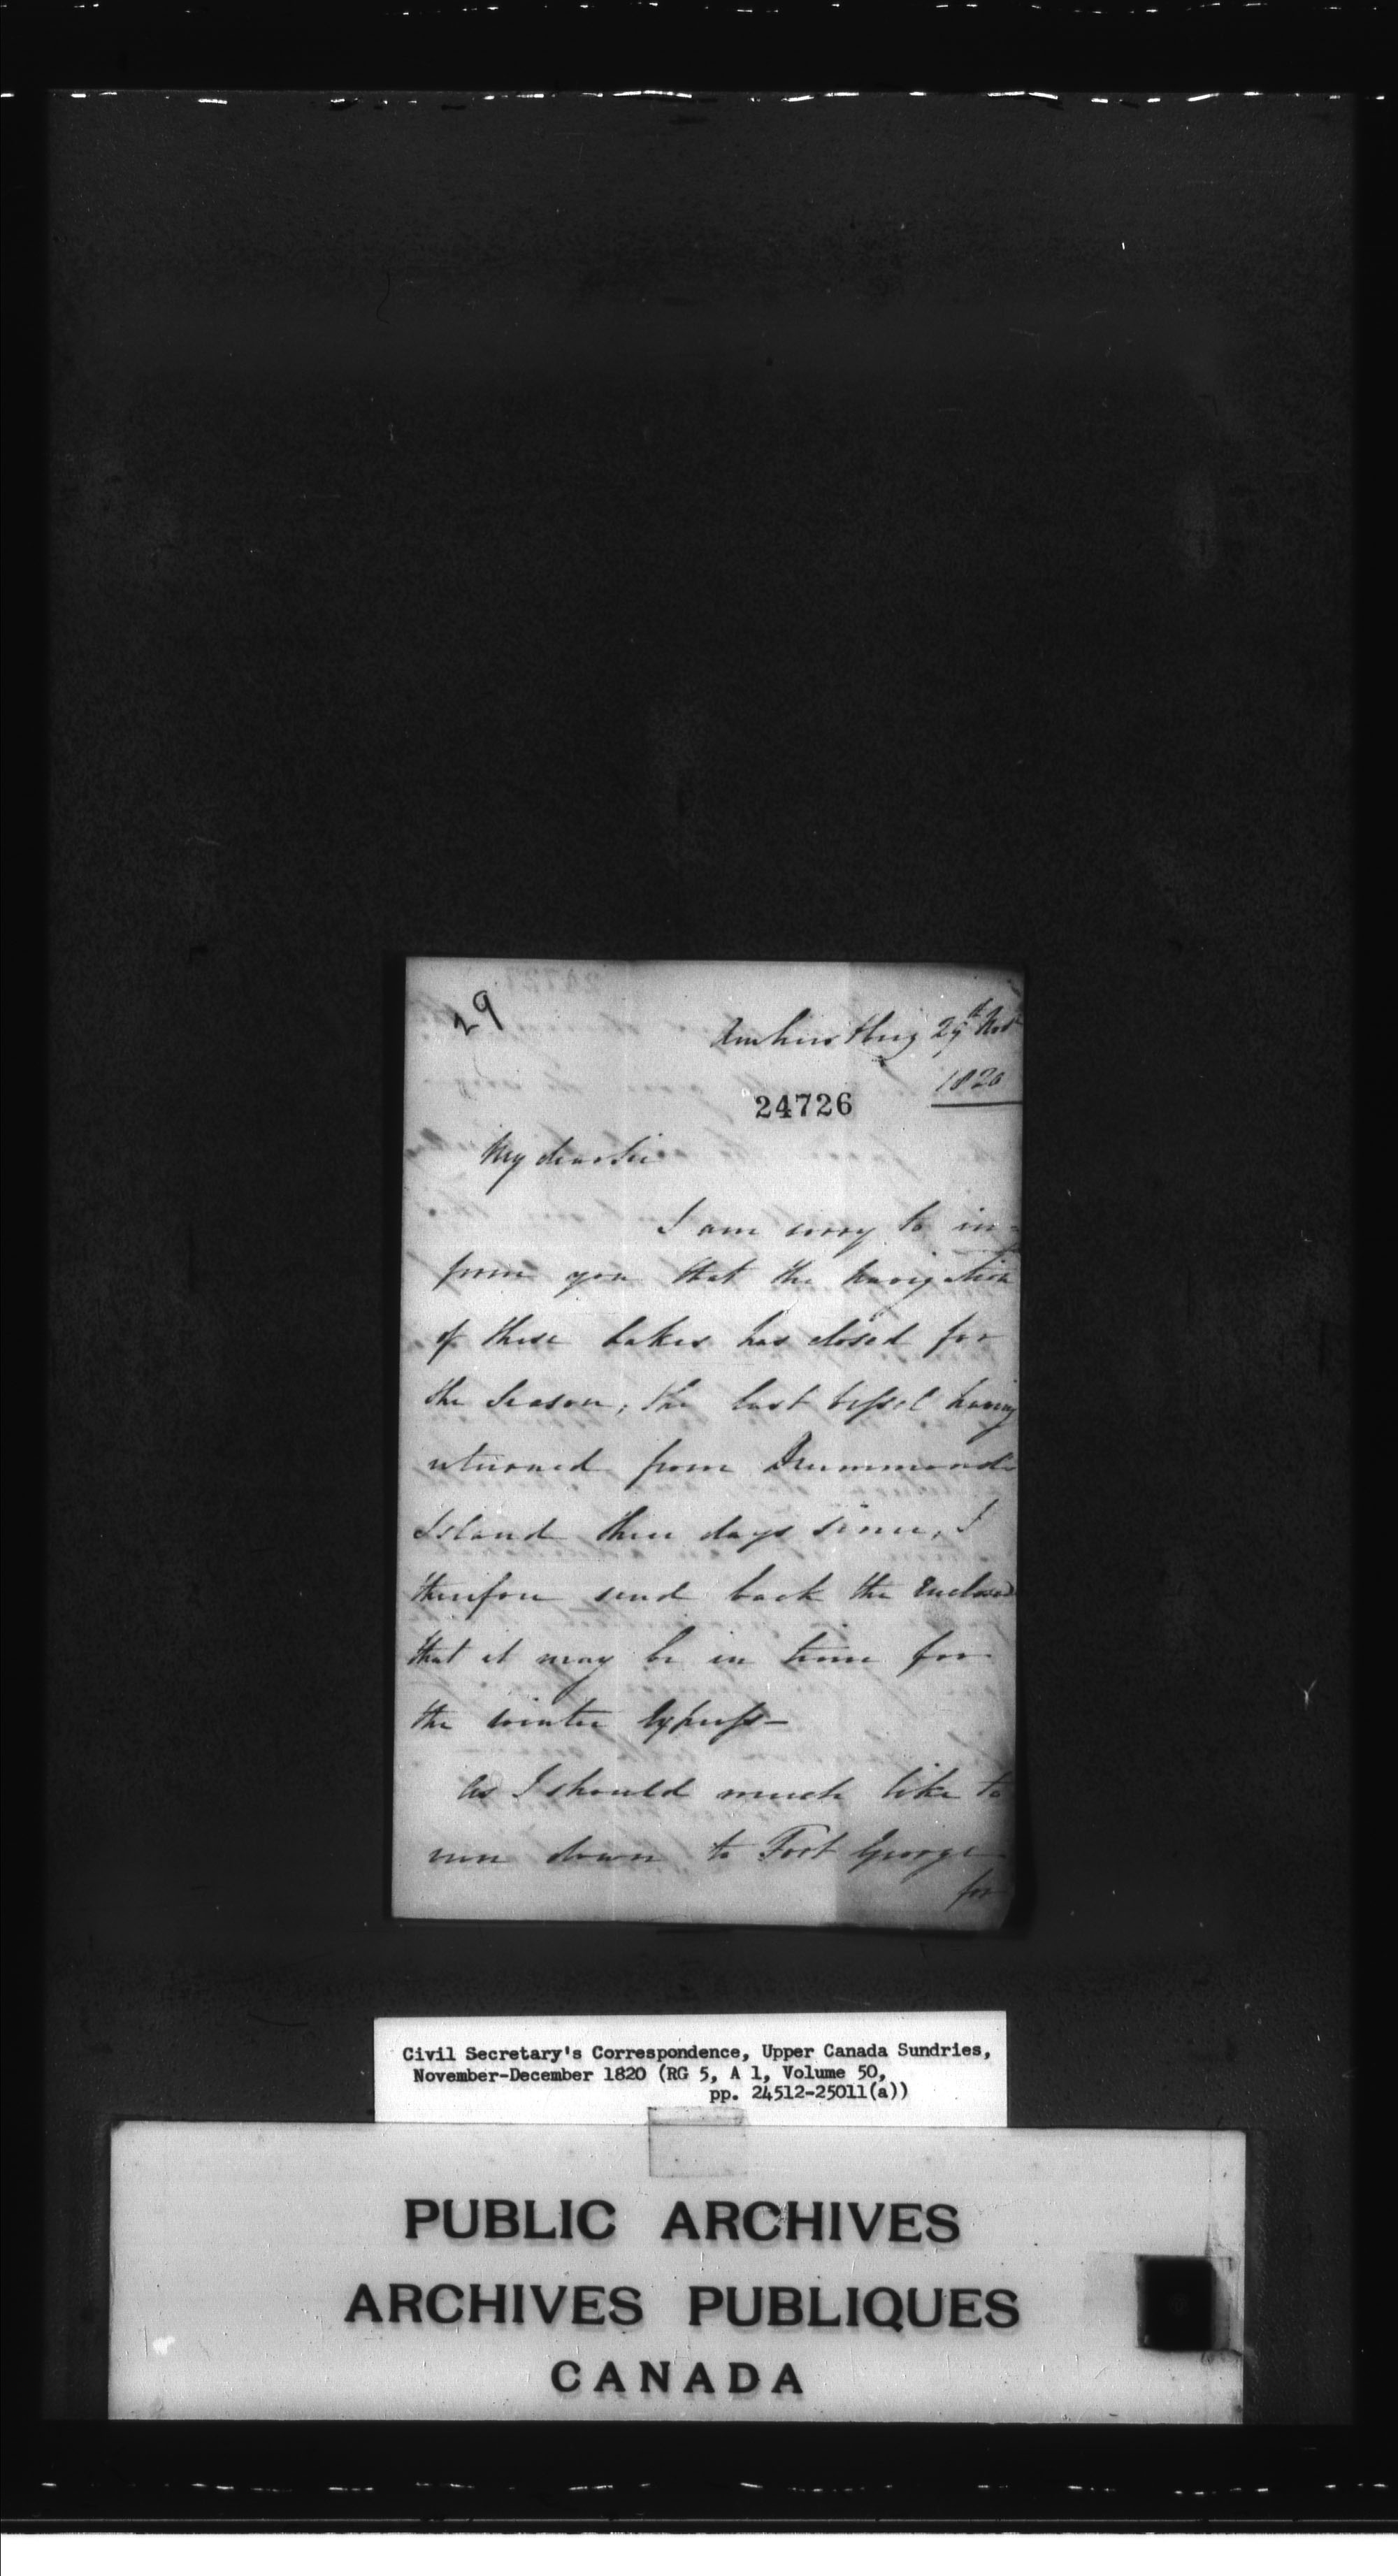 29
Amherstburg 29th Novr
1820
24726
My dear Sir
I am sorry to in=
form you that the Navigation
of these Lakes has closed for
the Season, the last Vessel having
returned from Drummonds
Island three days since, I
therefore send back the Enclosed
that it may be in time for
the winter Express—
As I should much like to
run down to Fort George
for
Civil Secretary's Correspondence, Upper Canada Sundries,
November-December 1820 (RG 5, A 1, Volume 50,
pp. 24512-25011(a))
PUBLIC ARCHIVES
ARCHIVES PUBLIQUES
CANADA